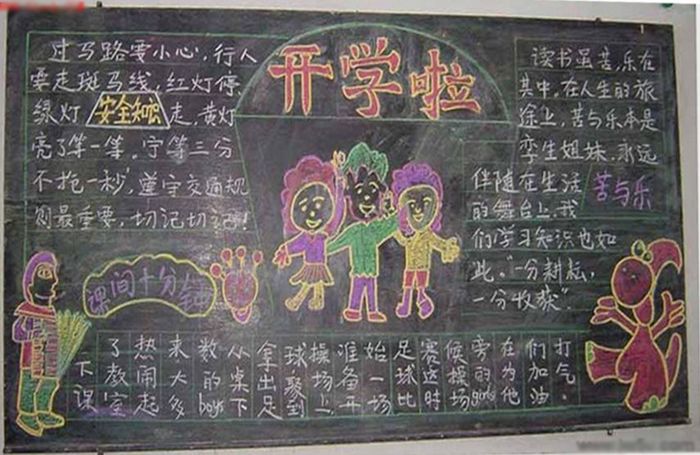 开学啦
过马路要小心,行人
要走斑马线,红灯停
绿灯 安全知识 走,黄灯
亮了等一等。宁等三分
不抢一秒,遵守交通规
则最重要,切记切记!
读书虽苦,乐在
其中,在人生的旅
途上,苦与乐本是
孪生姐妹,永远
伴随在生活 苦与乐
的舞台上,我
们学习知识也如
此,“一分耕耘,
一分收获”
课间十分钟
下课
了教室
热闹起
来大多
数的boys
从桌下
拿出足
球聚到
操场上
准备开
始一场
足球比
赛这时
候操场
旁的girls
在为他
们加油
打气。